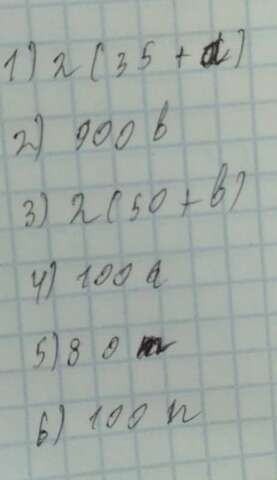 1) 2(35 + a)
2) 900 b
3) 2(50 + b)
4) 100 a
5) 80 m
6) 100 n